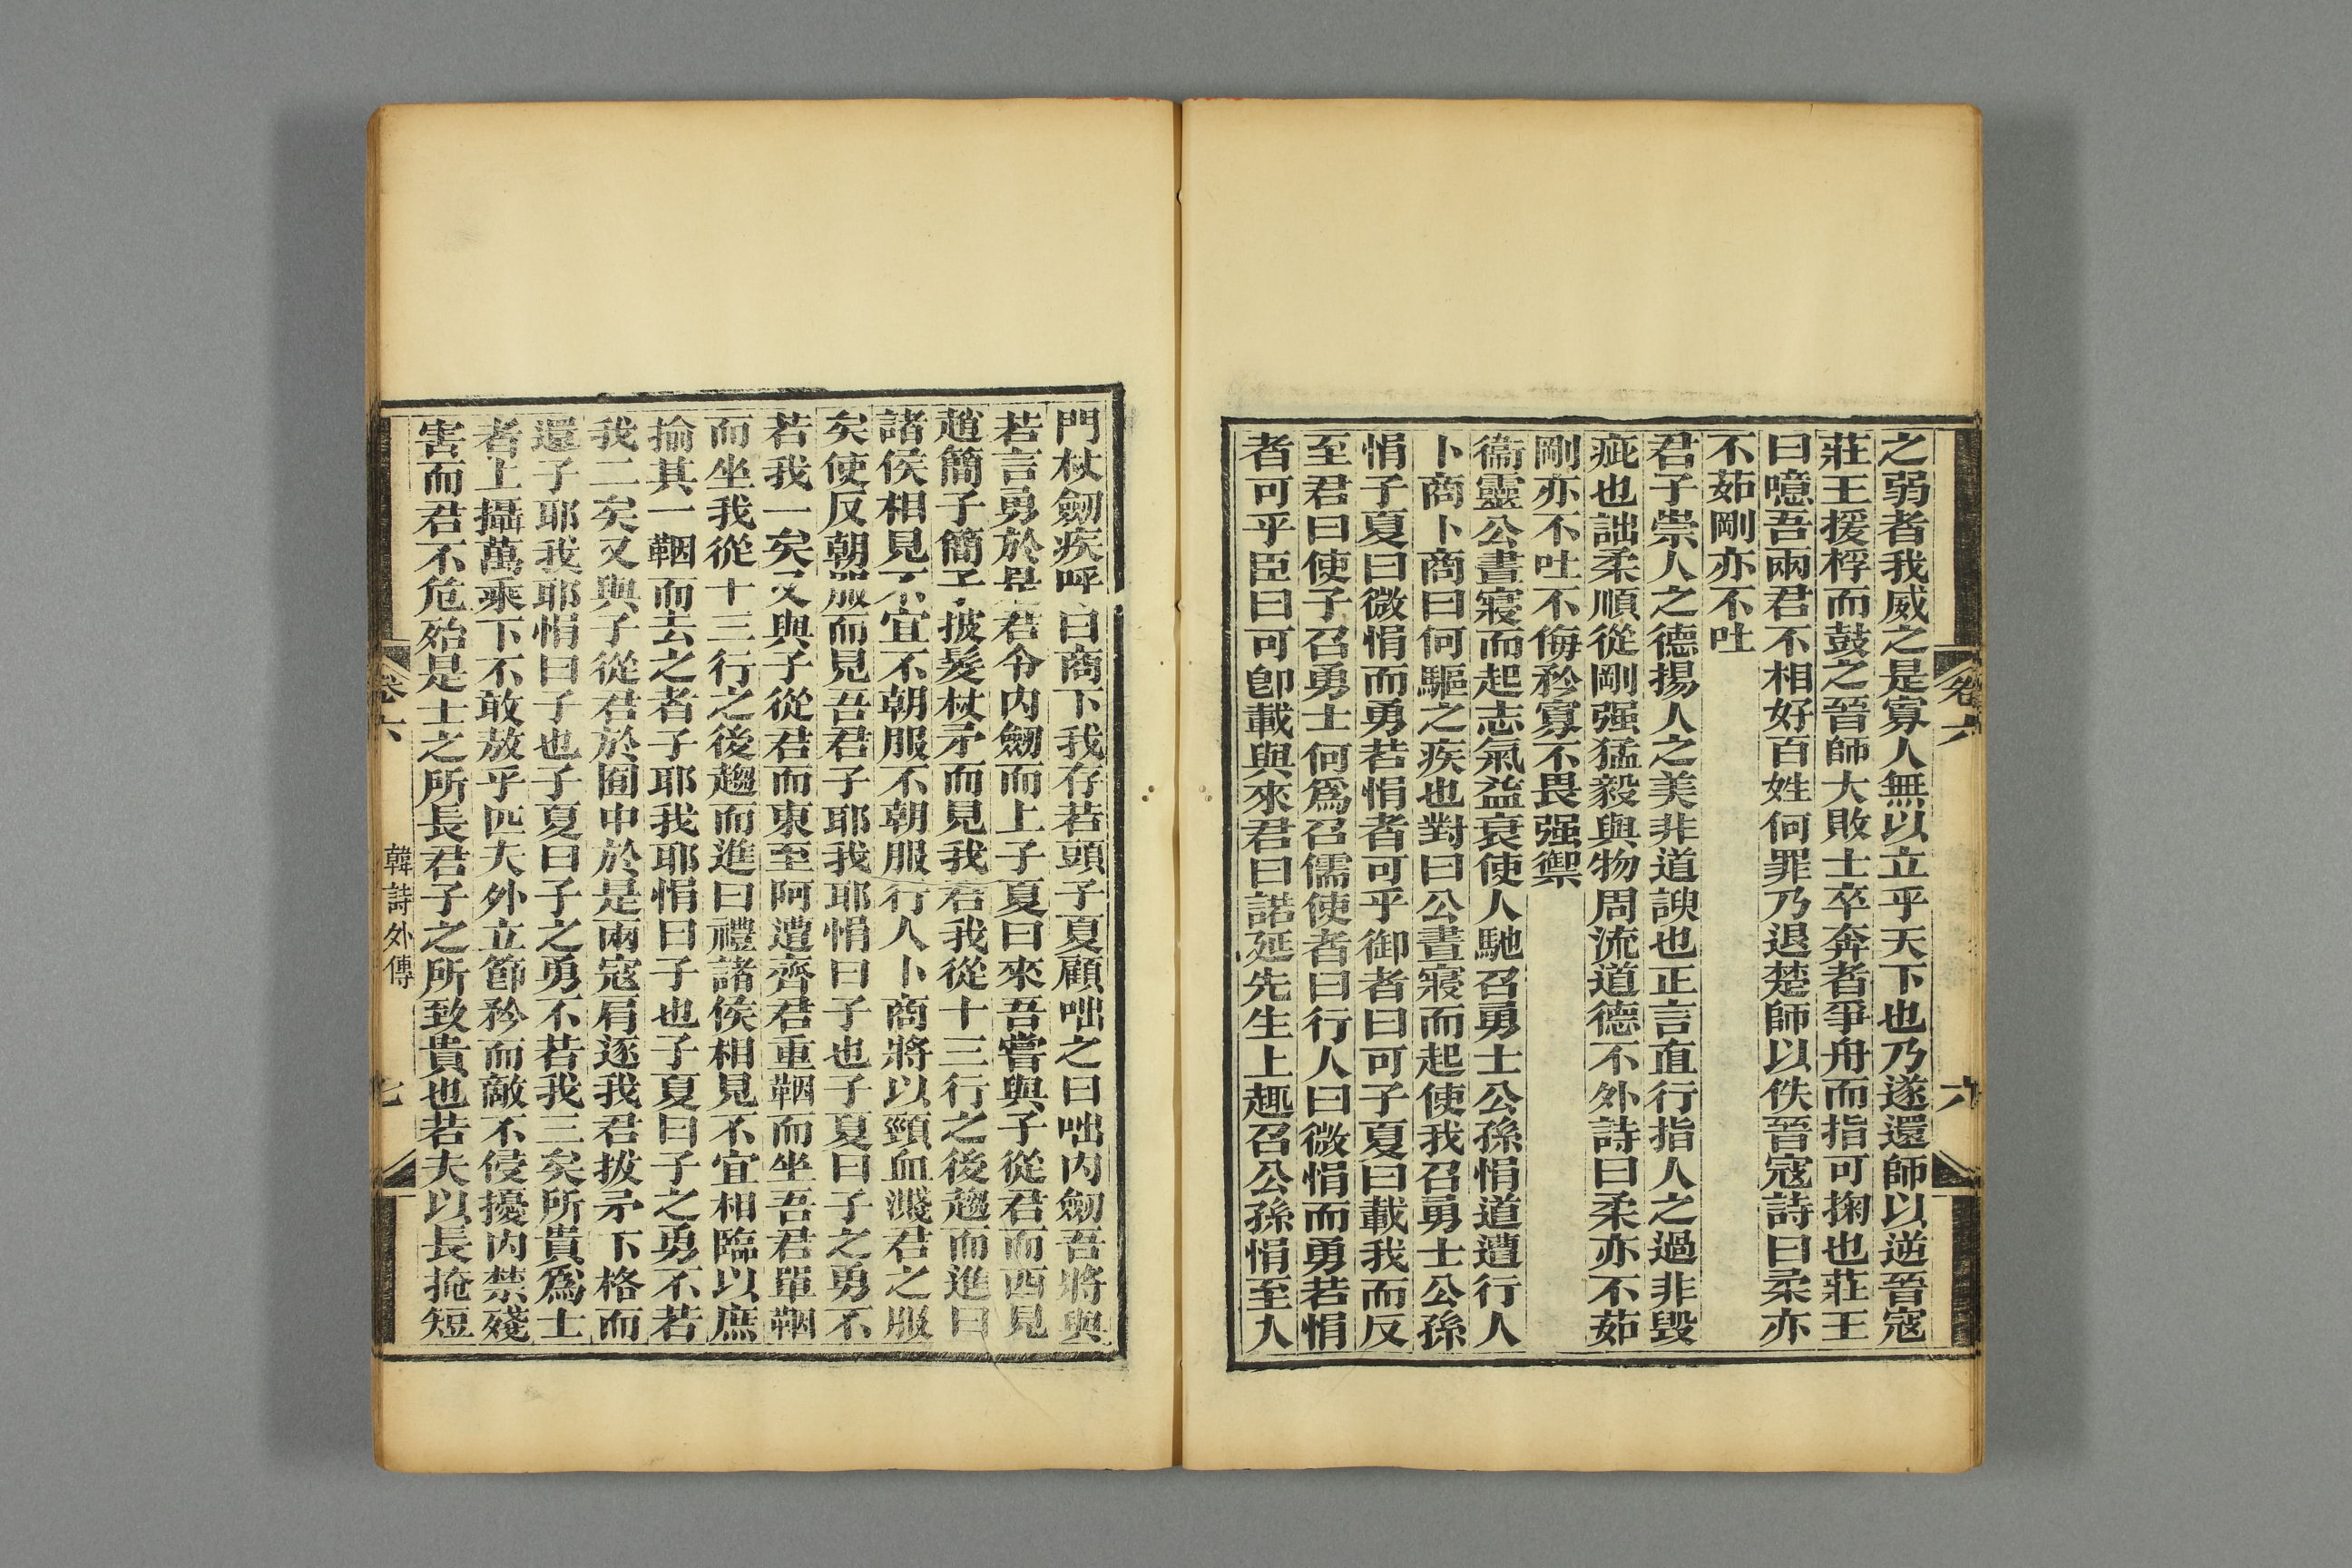 之弱者我威之是寡人無以立乎天下也乃遂還師以逆晉寇
莊王援桴而鼓之晉師大敗士卒奔者爭舟而指可掬也莊王
曰噫吾兩君不相好百姓何罪乃退楚師以佚晉寇詩曰柔亦
不茹剛亦不吐
君子崇人之德揚人之美非道諛也正言直行指人之過非毀
疵也詘柔順從剛强猛毅與物周流道德不外詩曰柔亦不茹
剛亦不吐不侮矜寡不畏强禦
衞靈公晝寢而起志氣益衰使人馳召勇士公孫悁道遭行人
卜商卜商曰何驅之疾也對曰公晝寢而起使我召勇士公孫
悁子夏曰微悁而勇若悁者可乎御者曰可子夏曰載我而反
至君曰使子召勇士何爲召儒使者曰行人曰微悁而勇若悁
者可乎臣曰可卽載與來君曰諾延先生上趣召公孫悁至入
卷六
六
門杖劒疾呼曰商下我存若頭子夏顧咄之曰咄內劒吾將與
若言勇於是君令內劒而上子夏曰來吾嘗與子從君而西見
趙簡子簡子披髮杖矛而見我君我從十三行之後趨而進曰
諸侯相見不宜不朝服不朝服行人卜商將以頸血濺君之服
矣使反朝服而見吾君子耶我耶悁曰子也子夏曰子之勇不
若我一矣又與子從君而東至阿遭齊君重鞇而坐吾君單鞇
而坐我從十三行之後趨而進曰禮諸侯相見不宜相臨以庶
揄其一鞇而去之者子耶我耶悁曰子也子夏曰子之勇不若
我二矣又與子從君於囿中於是兩寇肩逐我君拔矛下格而
還子耶我耶悁曰子也子夏曰子之勇不若我三矣所貴爲士
者上攝萬乘下不敢敖乎匹夫外立節矜而敵不侵擾內禁殘
害而君不危殆是士之所長君子之所致貴也若夫以長掩短
卷六
韓詩外傳
七